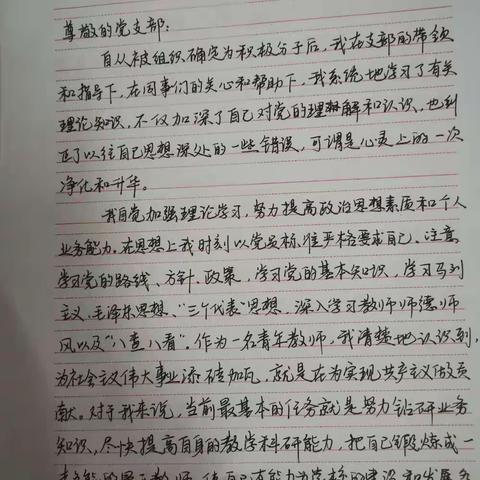 尊敬的党支部：
自从被组织确定为积极分子后，我在支部的带领
和指导下，在同事们的关心和帮助下，我系统地学习了有关
理论知识，不仅加深了自己对党的理解和认识，也纠
正了以往自己思想深处的一些错误，可谓是心灵上的一次
净化和升华。
我自觉加强理论学习，努力提高政治思想素质和个人
业务能力。在思想上我时刻以党员标准严格要求自己。注意
学习党的路线、方针、政策，学习党的基本知识，学习马列
主义、毛泽东思想、“三个代表”思想，深入学习教师师德师
风以及“八查八看”。作为一名青年教师，我清楚地认识到，
为社会主义伟大事业添砖加瓦，就是在为实现共产主义做贡
献。对于我来说，当前最基本的任务就是努力钻研业务
知识，尽快提高自身的教学科研能力，把自己锻炼成一
教师，使自己有能力为学校的建设和发展